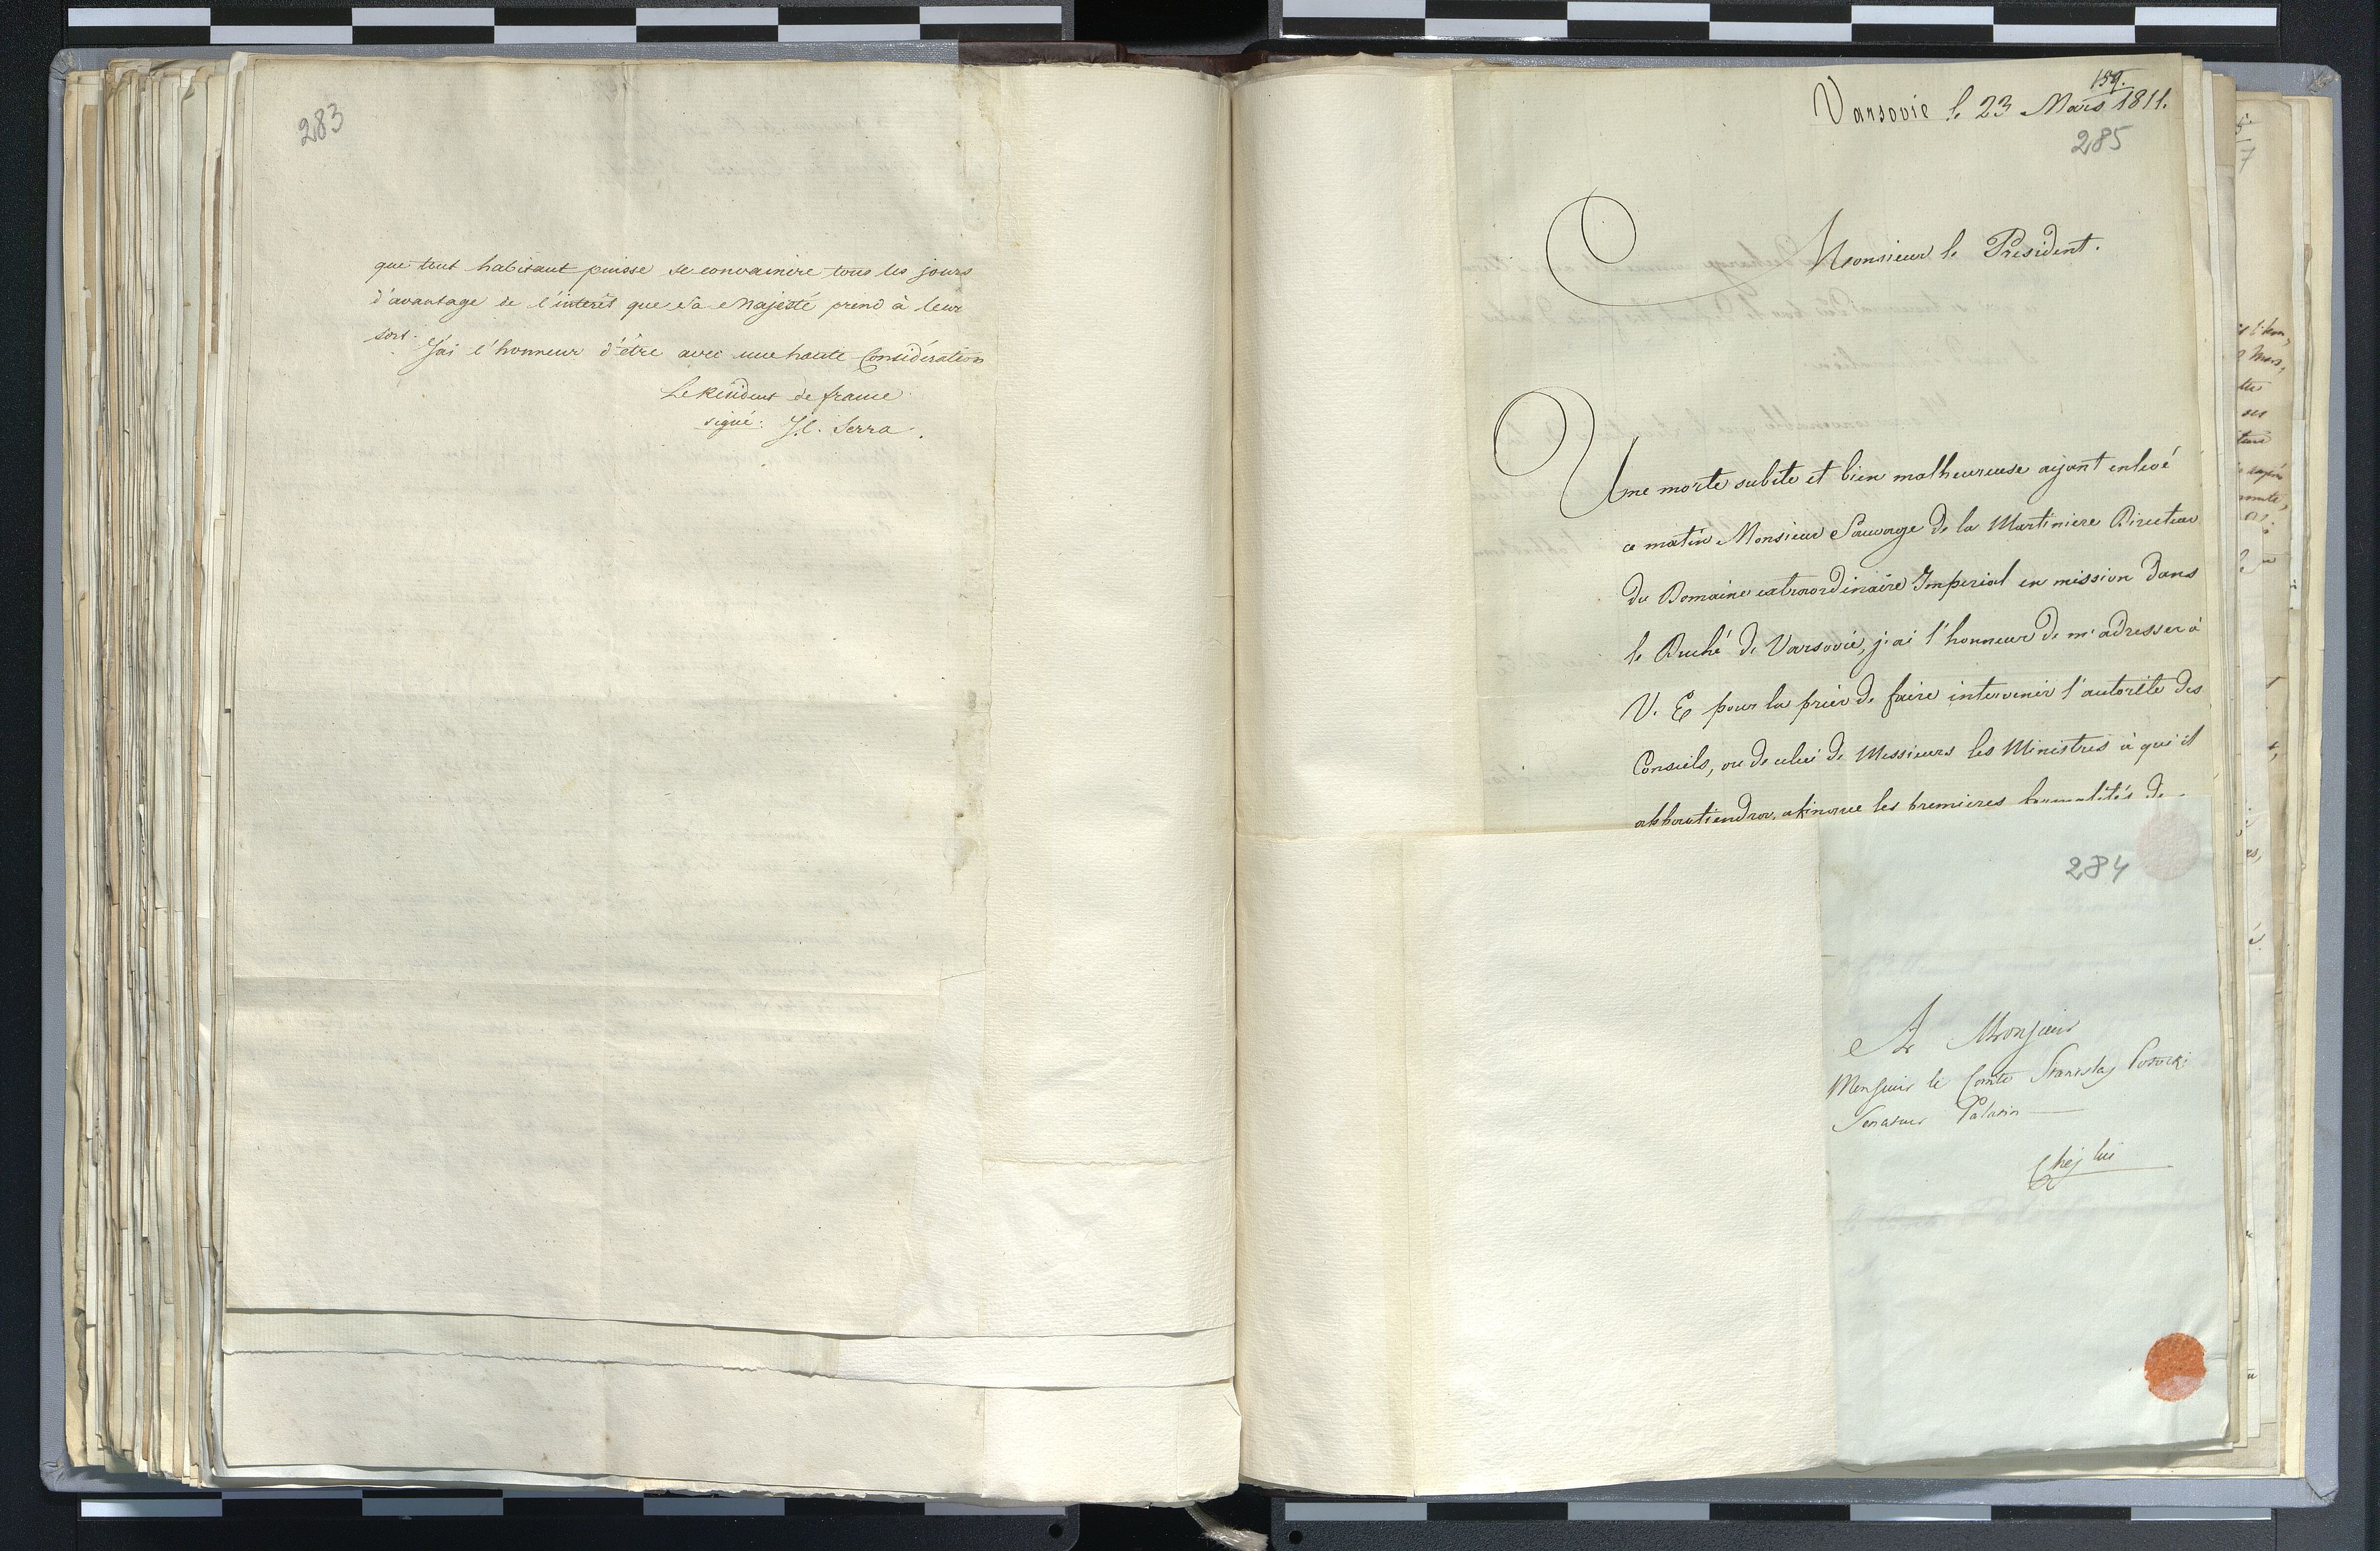 283
que tout habitant puisse se convaincre tous les jours
d'avantage de l'interêt que Sa Majesté prend à leur
sort.
J'ai l'honneur d'être avec une haute Considération
Le Résident de france
signé: J. C. Serra.
159.
Varsovie le 23 Mars 1811.
285
Monsieur le President.
Une morte subite et bien malheureuse ayant enlevé
ce matin Monsieur Sauvage de la Martiniere Directeur
du Domaine extraordinaire Imperial en mission dans
le Duché de Varsovie, j'ai l'honneur de m'adresser à
V. E pour la prier de faire intervenir l'autorité des
Conseils, ou de celui de Messieurs les Ministres à qui il
appartiendra, afin que les premieres formalités de
284
A Monsieur
Monsieur le Comte Stanislas Potocki
Senateur Palatin
Chez lui